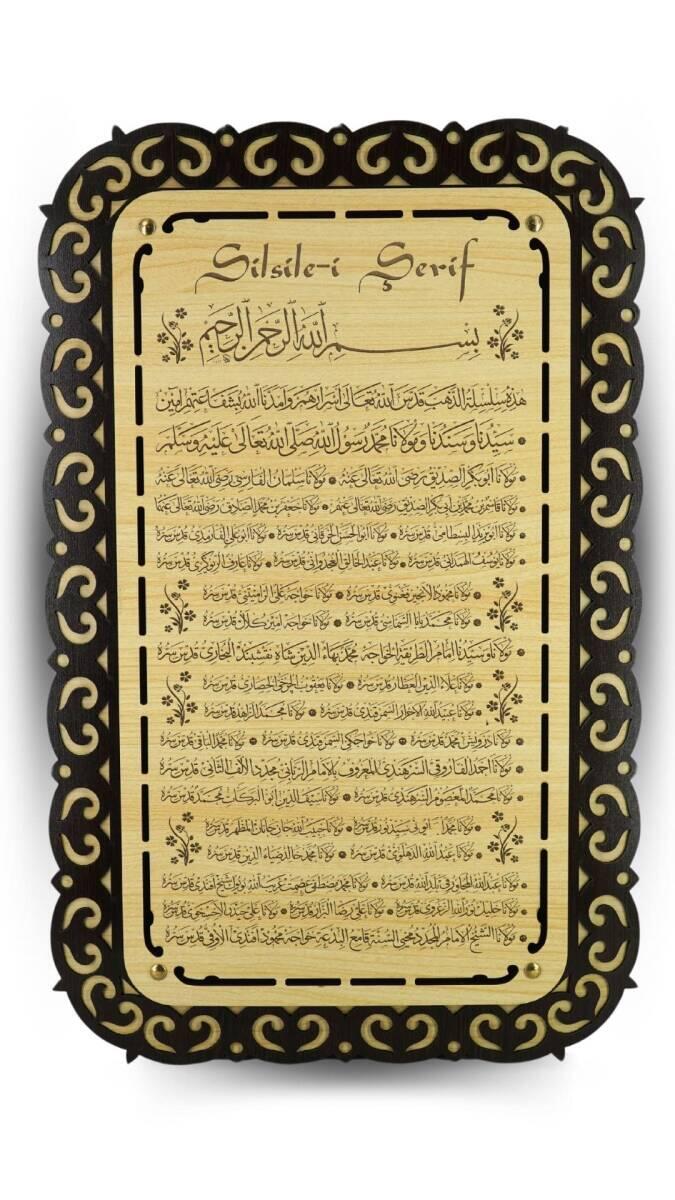 Silsile-i Şerif
بِسْمِ اللّٰهِ الرَّحْمٰنِ الرَّحِيمِ
هذه سلسلة الذهب قدس الله تعالى اسرارهم وامدنا الله بشفاعتهم امين
سيدنا وسندنا ومولانا محمد رسول الله صلى الله تعالى عليه وسلم
مولانا ابو بكر الصديق رضى الله تعالى عنه مولانا سلمان الفارسى رضى الله تعالى عنه
مولانا قاسم بن محمد بن ابى بكر الصديق رضى الله تعالى عنهم مولانا جعفر بن محمد الصادق رضى الله تعالى عنهما
مولانا ابو يزيد البسطامى قدس سره مولانا ابو الحسن الخرقانى قدس سره مولانا ابو على الفارمدى قدس سره
مولانا يوسف الهمدانى قدس سره مولانا عبد الخالق الغجدوانى قدس سره مولانا عارف الريوكرى قدس سره
مولانا محمود الانجير فغنوى قدس سره مولانا خواجه على الراميتنى قدس سره
مولانا محمد بابا السماسى قدس سره مولانا خواجه امير كلال قدس سره
مولانا وسيدنا امام الطريقة الخواجه محمد بهاء الدين شاه نقشبند البخارى قدس سره
مولانا علاء الدين العطار قدس سره مولانا يعقوب الجرخى الحصارى قدس سره
مولانا عبيد الله الاحرار السمرقندى قدس سره مولانا محمد الزاهد قدس سره
مولانا درويش محمد قدس سره مولانا خواجكى السمرقندى قدس سره مولانا محمد الباقى قدس سره
مولانا احمد الفاروقى السرهندى المعروف بالامام الربانى مجدد الالف الثانى قدس سره
مولانا محمد المعصوم السرهندى قدس سره مولانا سيف الدين ابو البركات محمد قدس سره
مولانا محمد سيد نور قدس سره مولانا حبيب الله جان جانان المظهر قدس سره
مولانا عبد الله الدهلوى قدس سره مولانا محمد خالد ضياء الدين قدس سره
مولانا عبد الله المجاور فى بلد الله قدس سره مولانا محمد مصطفى عصمت غريب الله افندى قدس سره
مولانا خليل نور الله الزغروى قدس سره مولانا على رضا البزار قدس سره مولانا على حيدر الاخسخوى قدس سره
مولانا الشيخ الامام المجدد محيى السنة قامع البدعة خواجه محمود افندى الاوفى قدس سره